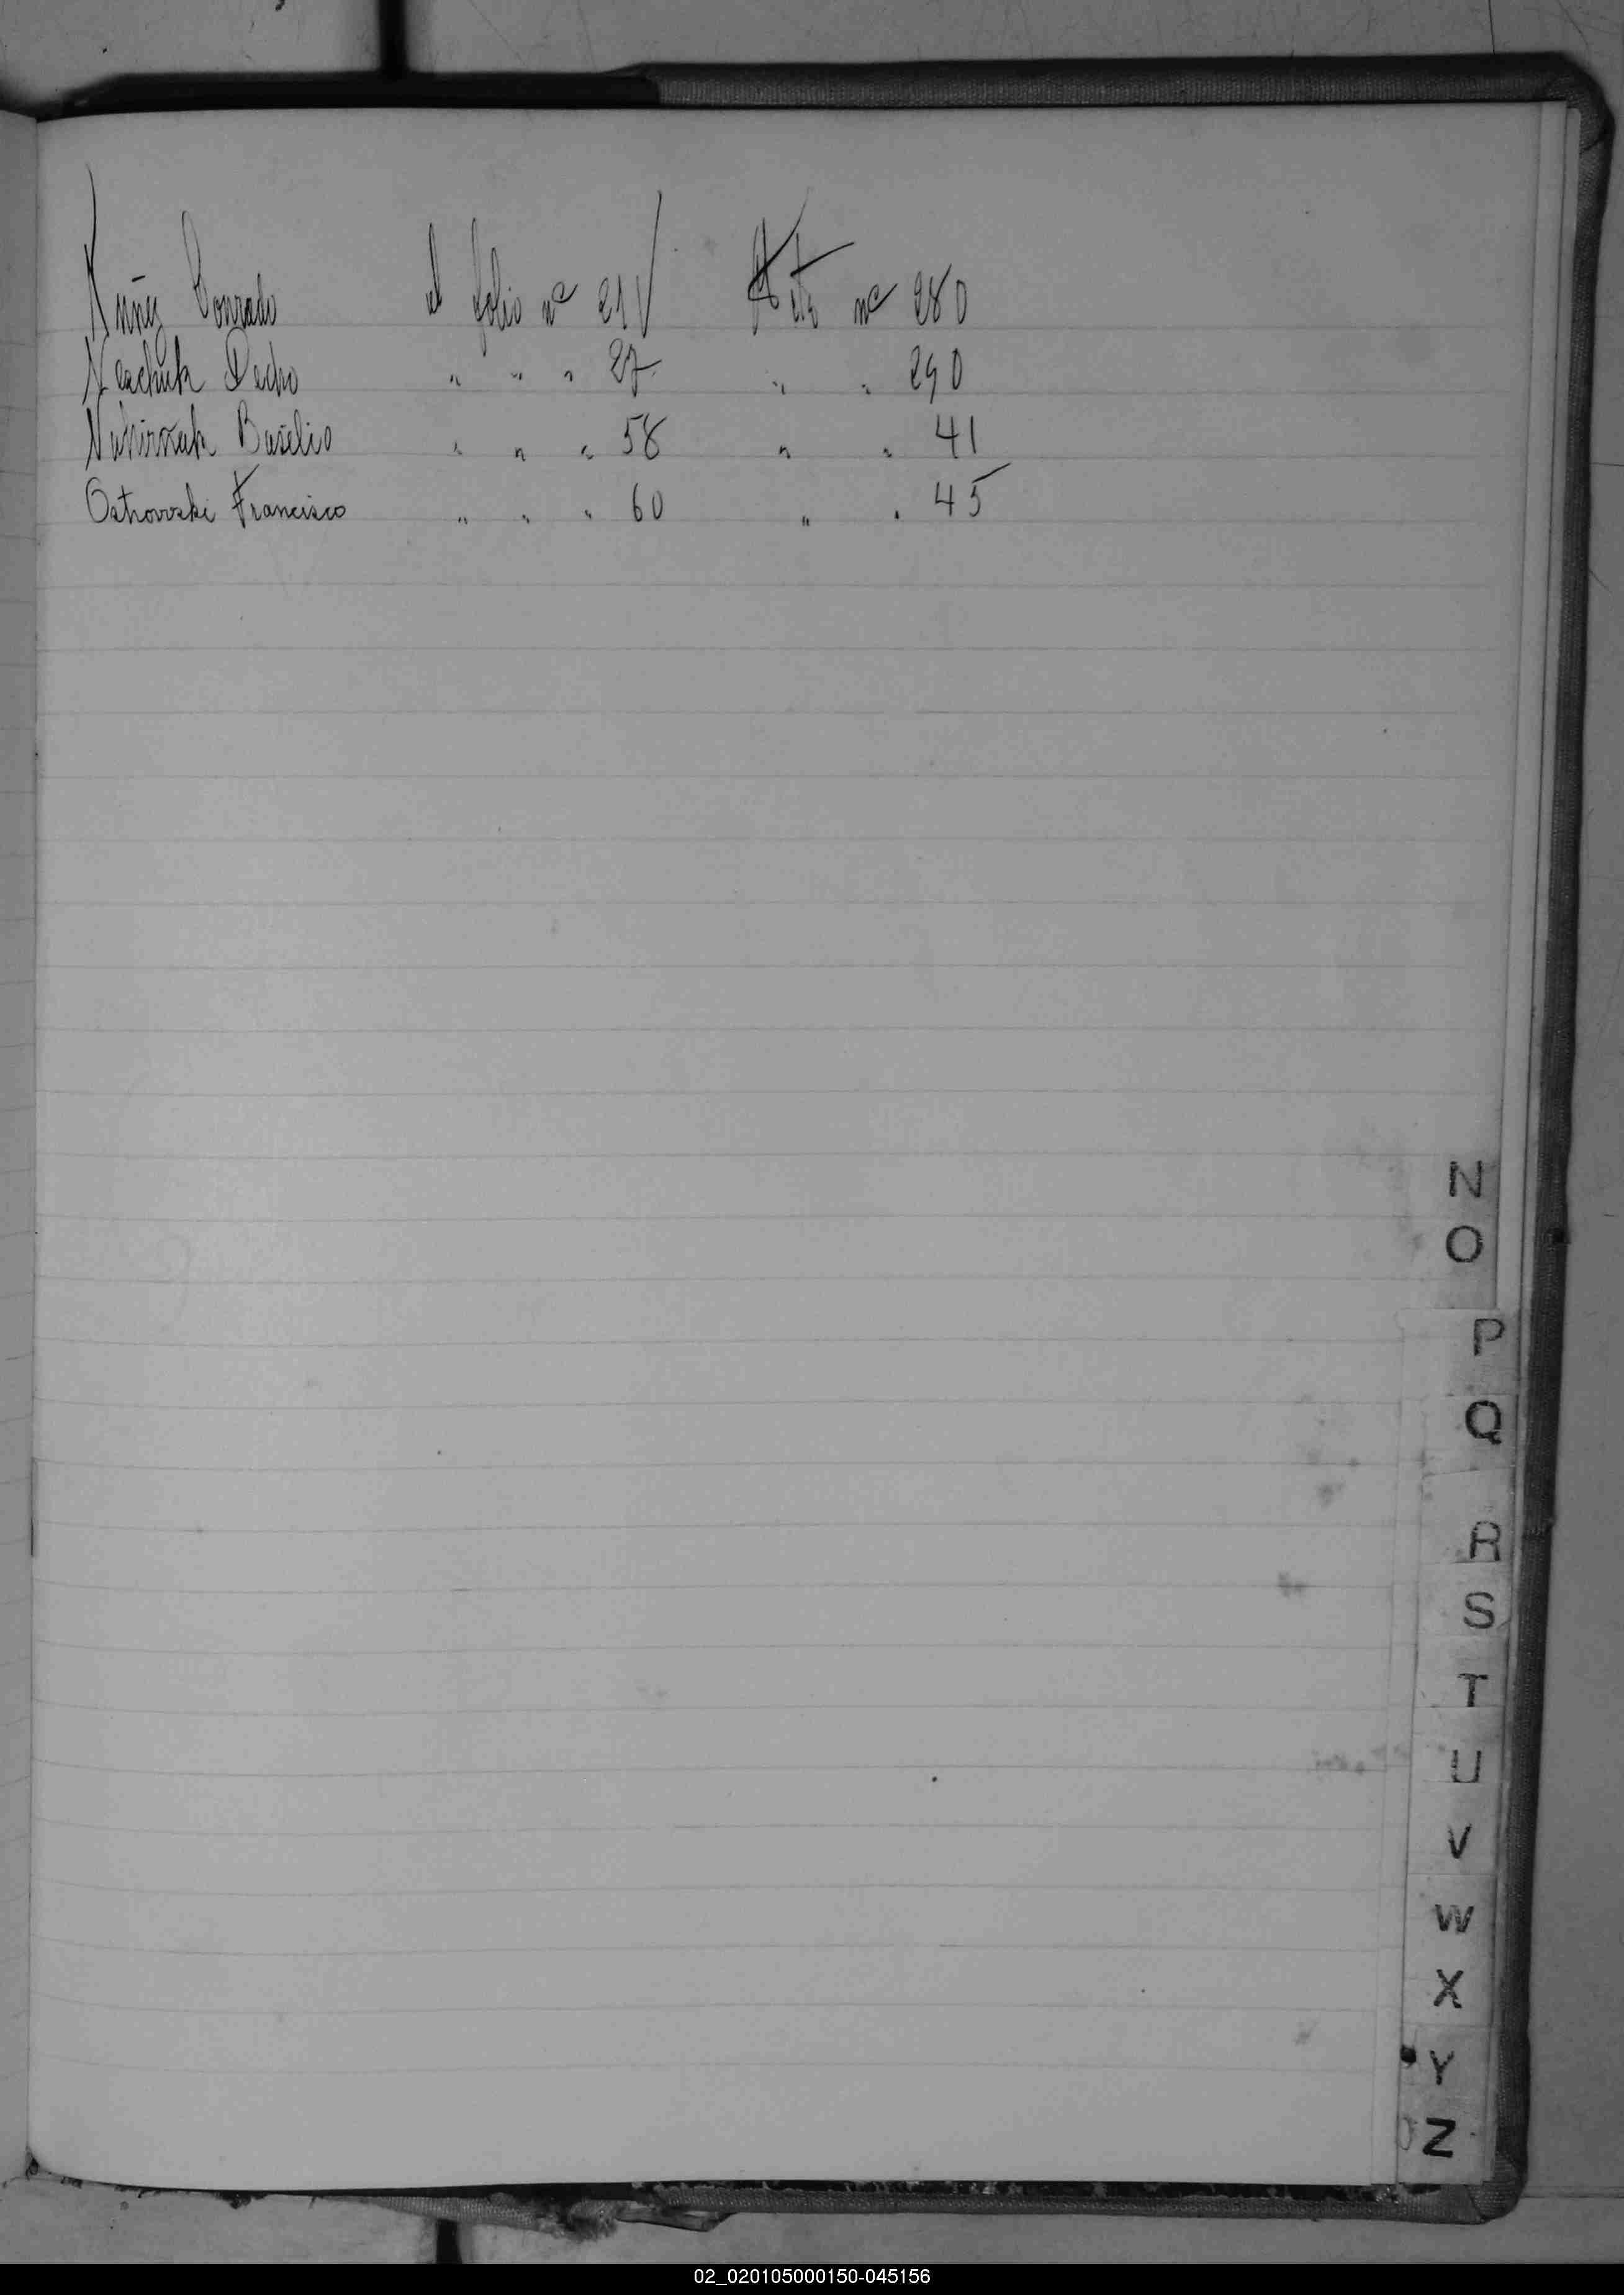 Nuñez Conrado al folio nº 21V Acta nº 280
Pedro " " " 27 " " 290
Basilio " " " 58 " " 41
Ostrovski Francisco " " " 60 " " 45
N
O
P
Q
R
S
T
U
V
W
X
Y
Z
02_020105000150-045156